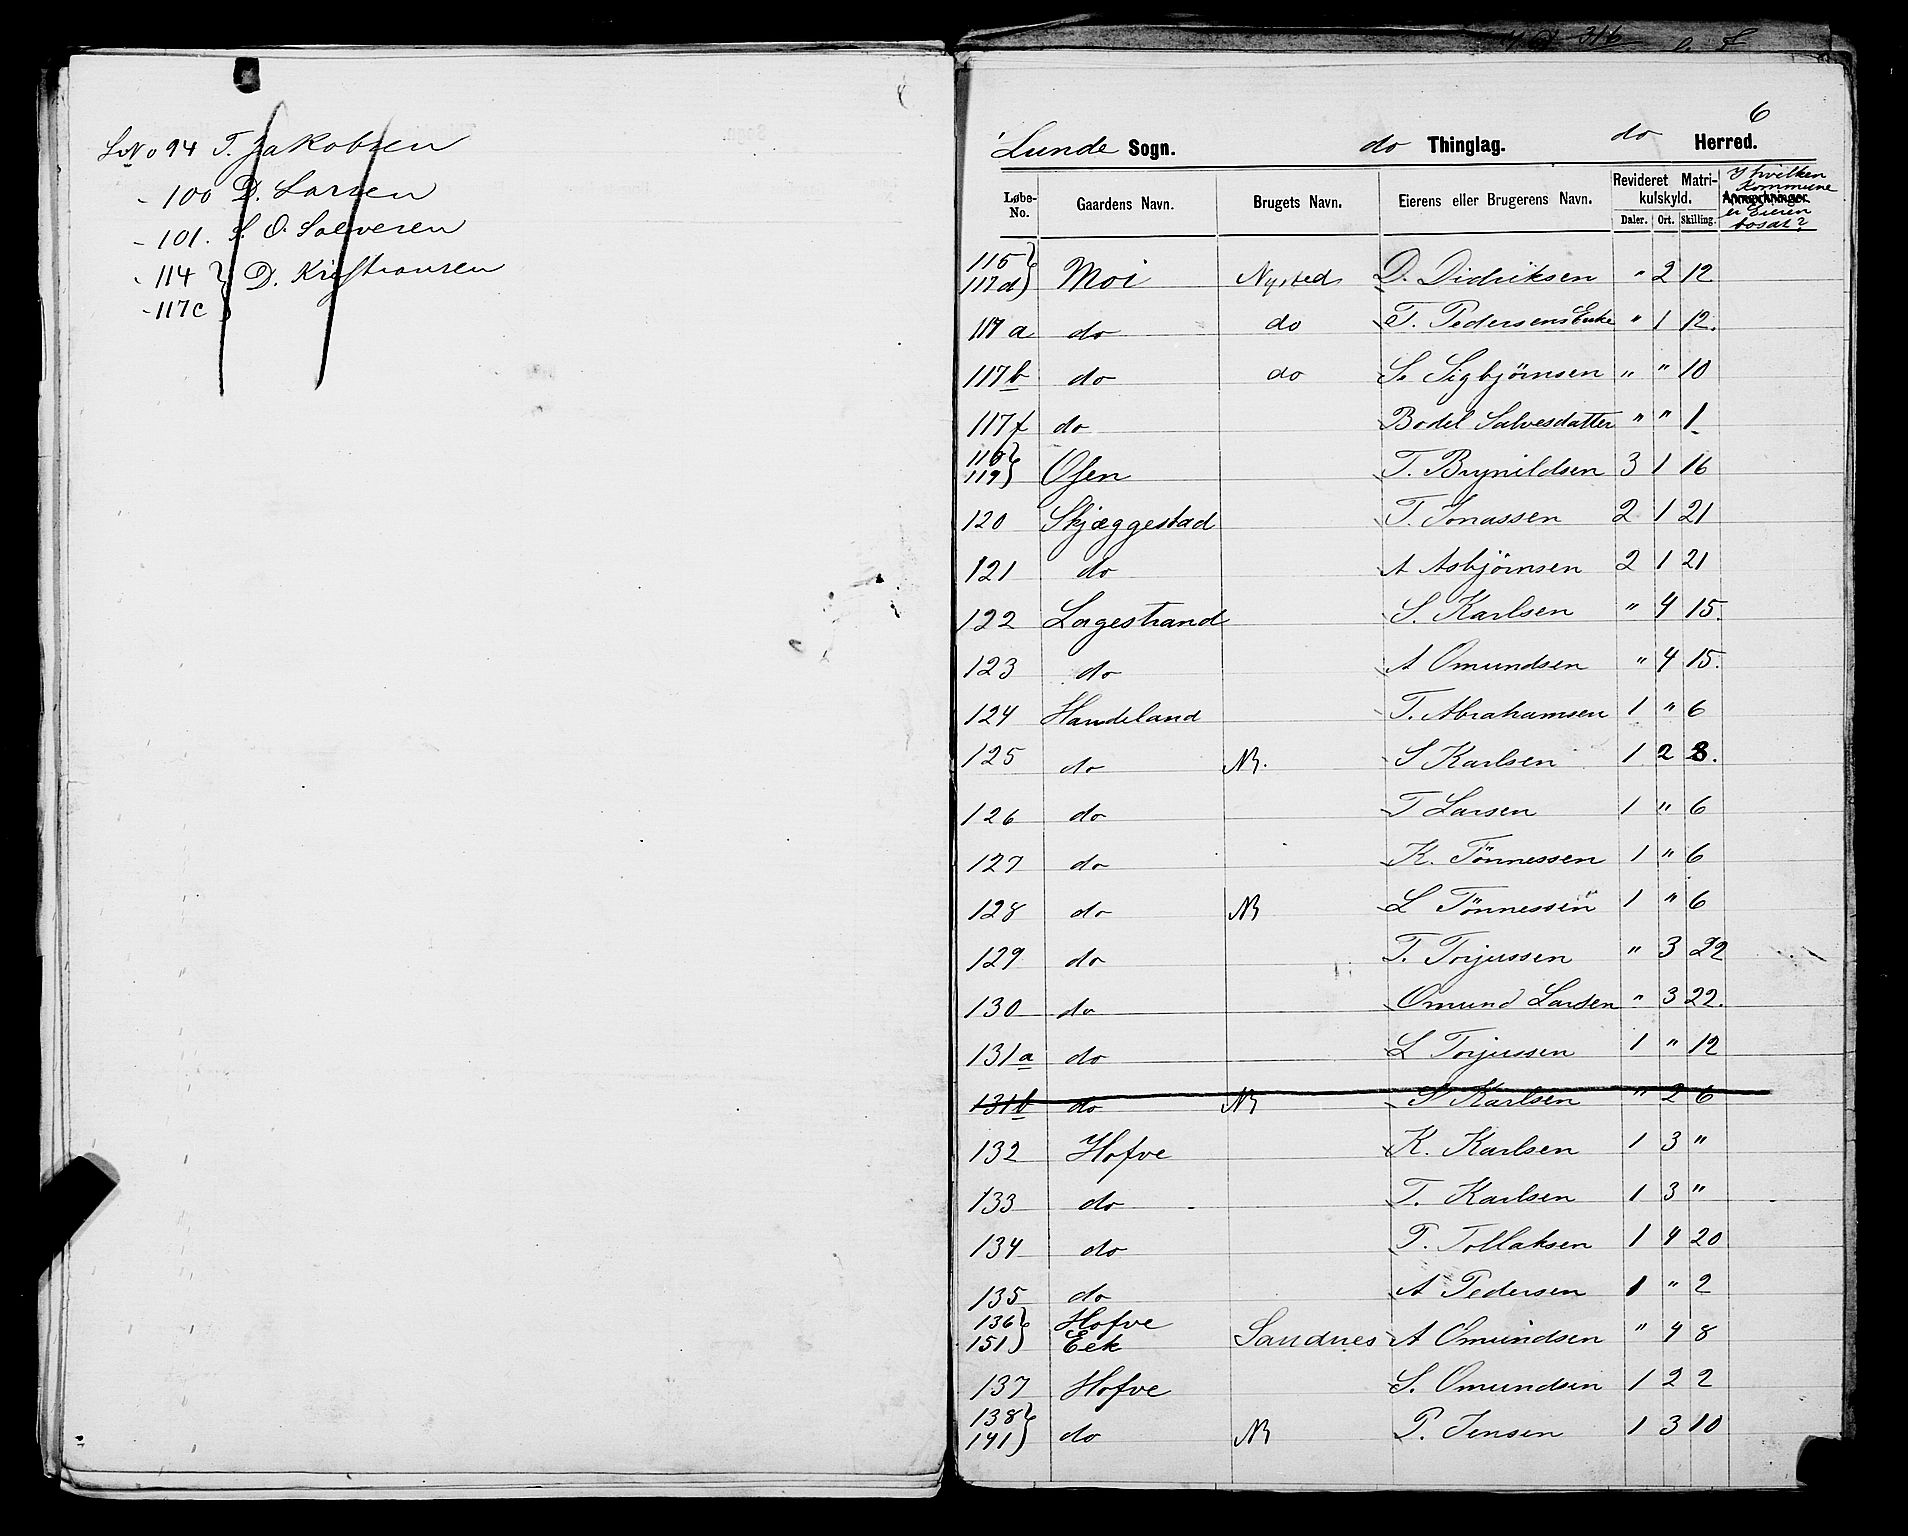 LNo 94 T. Jakobsen
- 100 D. Larsen
- 101. S. O. Salvesen
- 114 } D. Kristiansen
- 117c }
6
Lunde Sogn. do Thinglag. do Herred.
Løbe-No. Gaardens Navn. Brugets Navn. Eierens eller Brugerens Navn. Revideret Matrikulskyld. Daler. Ort. Skilling. Anmærkninger. I hvilken Kommune er Eieren bosat?
115 }
117d } Moi Nysted D. Didriksen " 2 12
117a do do T. Pedersens Enke " 1 12.
117b do do S. Sigbjørnsen " " 10
117f do Bodel Salvesdatter " " 1
118 }
119 } Osen T. Brynildsen 3 1 16
120 Skjæggestad T. Jonassen 2 1 21
121 do A Asbjørnsen 2 1 21
122 Lagestrand S. Karlsen " 4 15.
123 do A Omundsen " 4 15.
124 Handeland T. Abrahamsen 1 " 6
125 do NB. S Karlsen 1 2 3.
126 do T Larsen 1 " 6
127 do K. Tønnessen 1 " 6
128 do NB L Tønnessen 1 " 6
129 do T. Torjussen " 3 22
130 do Omund Larsen " 3 22.
131a do L Torjussen 1 " 12
131b do NB S Karlsen " 2 6
132 Hofve K. Karlsen 1 3 "
133 do T. Karlsen 1 3 "
134 do T. Tollaksen 1 4 20
135 do A Pedersen 1 " 2
136 } Hofve
151 } Eek Sandnes A Omundsen " 4 8
137 Hofve S. Omundsen 1 2 2
138 }
141 } do NB P. Jensen 1 3 10